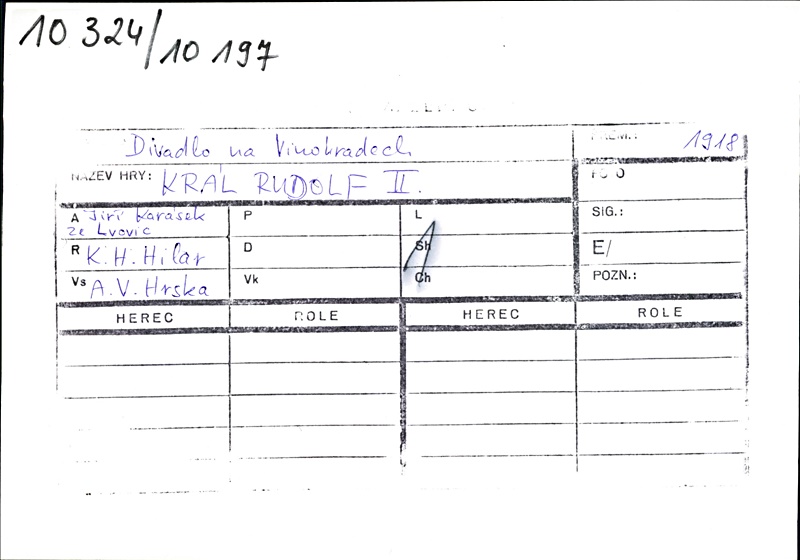 10 324/10 197
Divadlo na Vinohradech
PREM.: 1918
NÁZEV HRY: KRÁL RUDOLF II.
FOTO
A Jiří Karásek
ze Lvovic
P
L
SIG.:
R K. H. Hilar
D
Sh
E/
Vs A. V. Hrska
Vk
Ch
POZN.:
HEREC ROLE HEREC ROLE